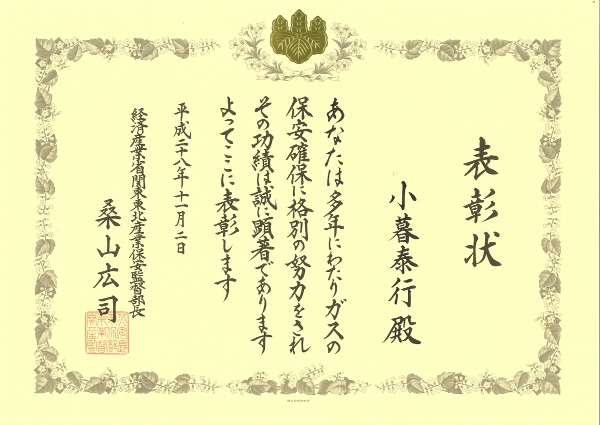 表彰状
小暮泰行殿
あなたは多年にわたりガスの
保安確保に格別の努力をされ
その功績は誠に顕著であります
よってここに表彰します
平成二十八年十一月二日
経済産業省関東東北産業保安監督部長
桑山広司